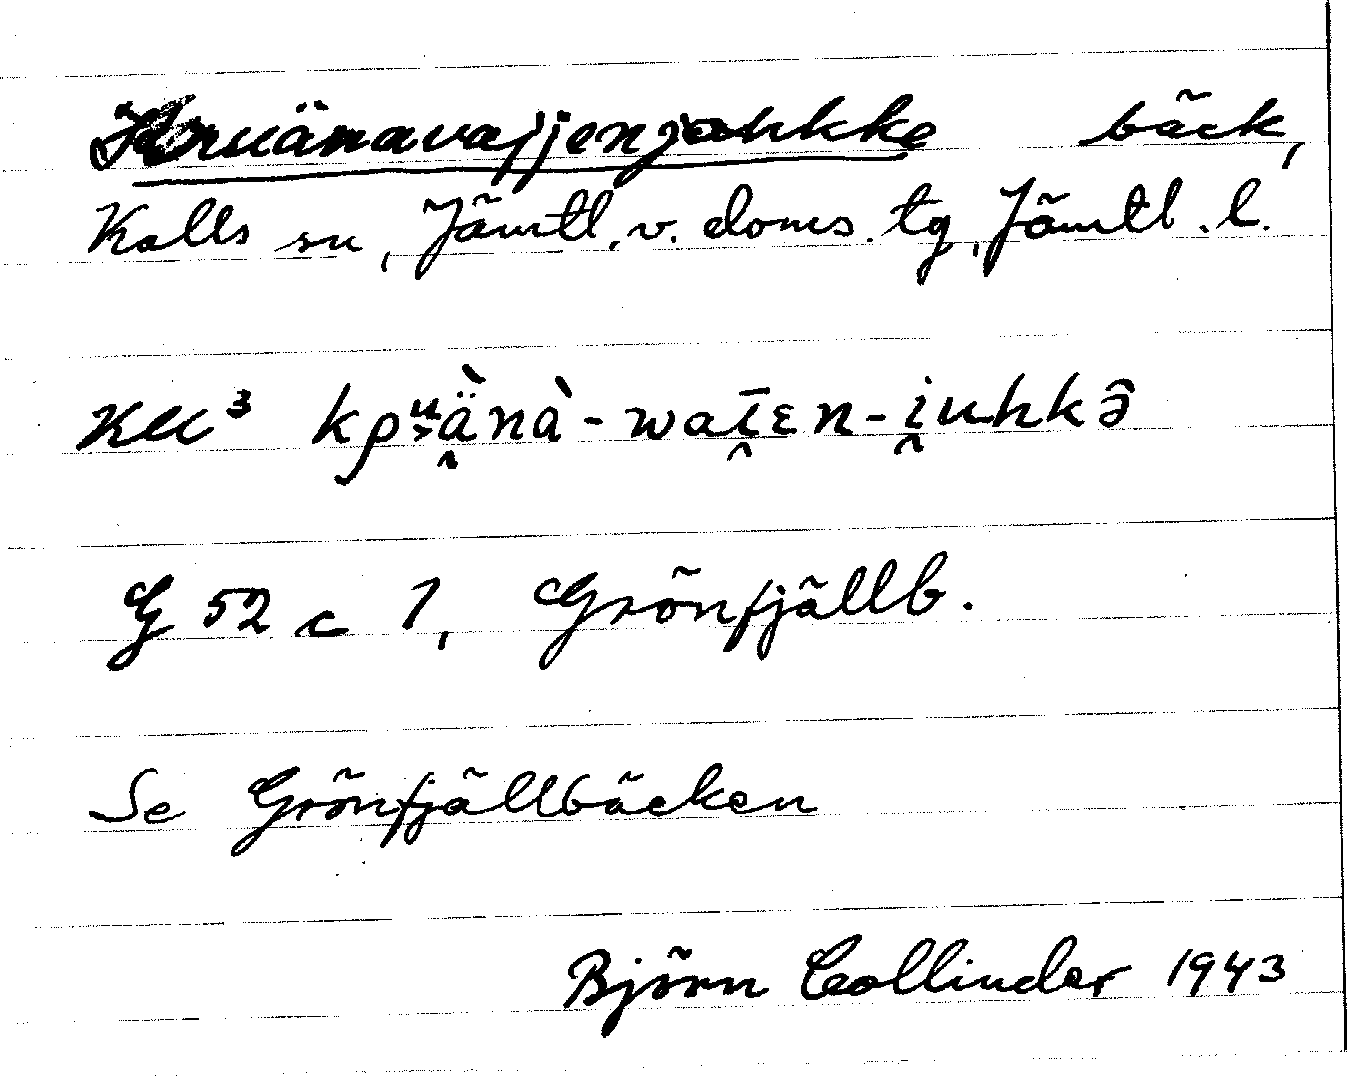 Kruänavajjenjohkke bäck,
Kalls sn, Jämtl. v. doms. tg, Jämtl. l.
KM³ kρᵘ̯ä̀nà-wai̯ɛn-i̯uhkə̑
G 52 c 1, Grönfjällb.
Se Grönfjällbäcken
Björn Collinder 1943